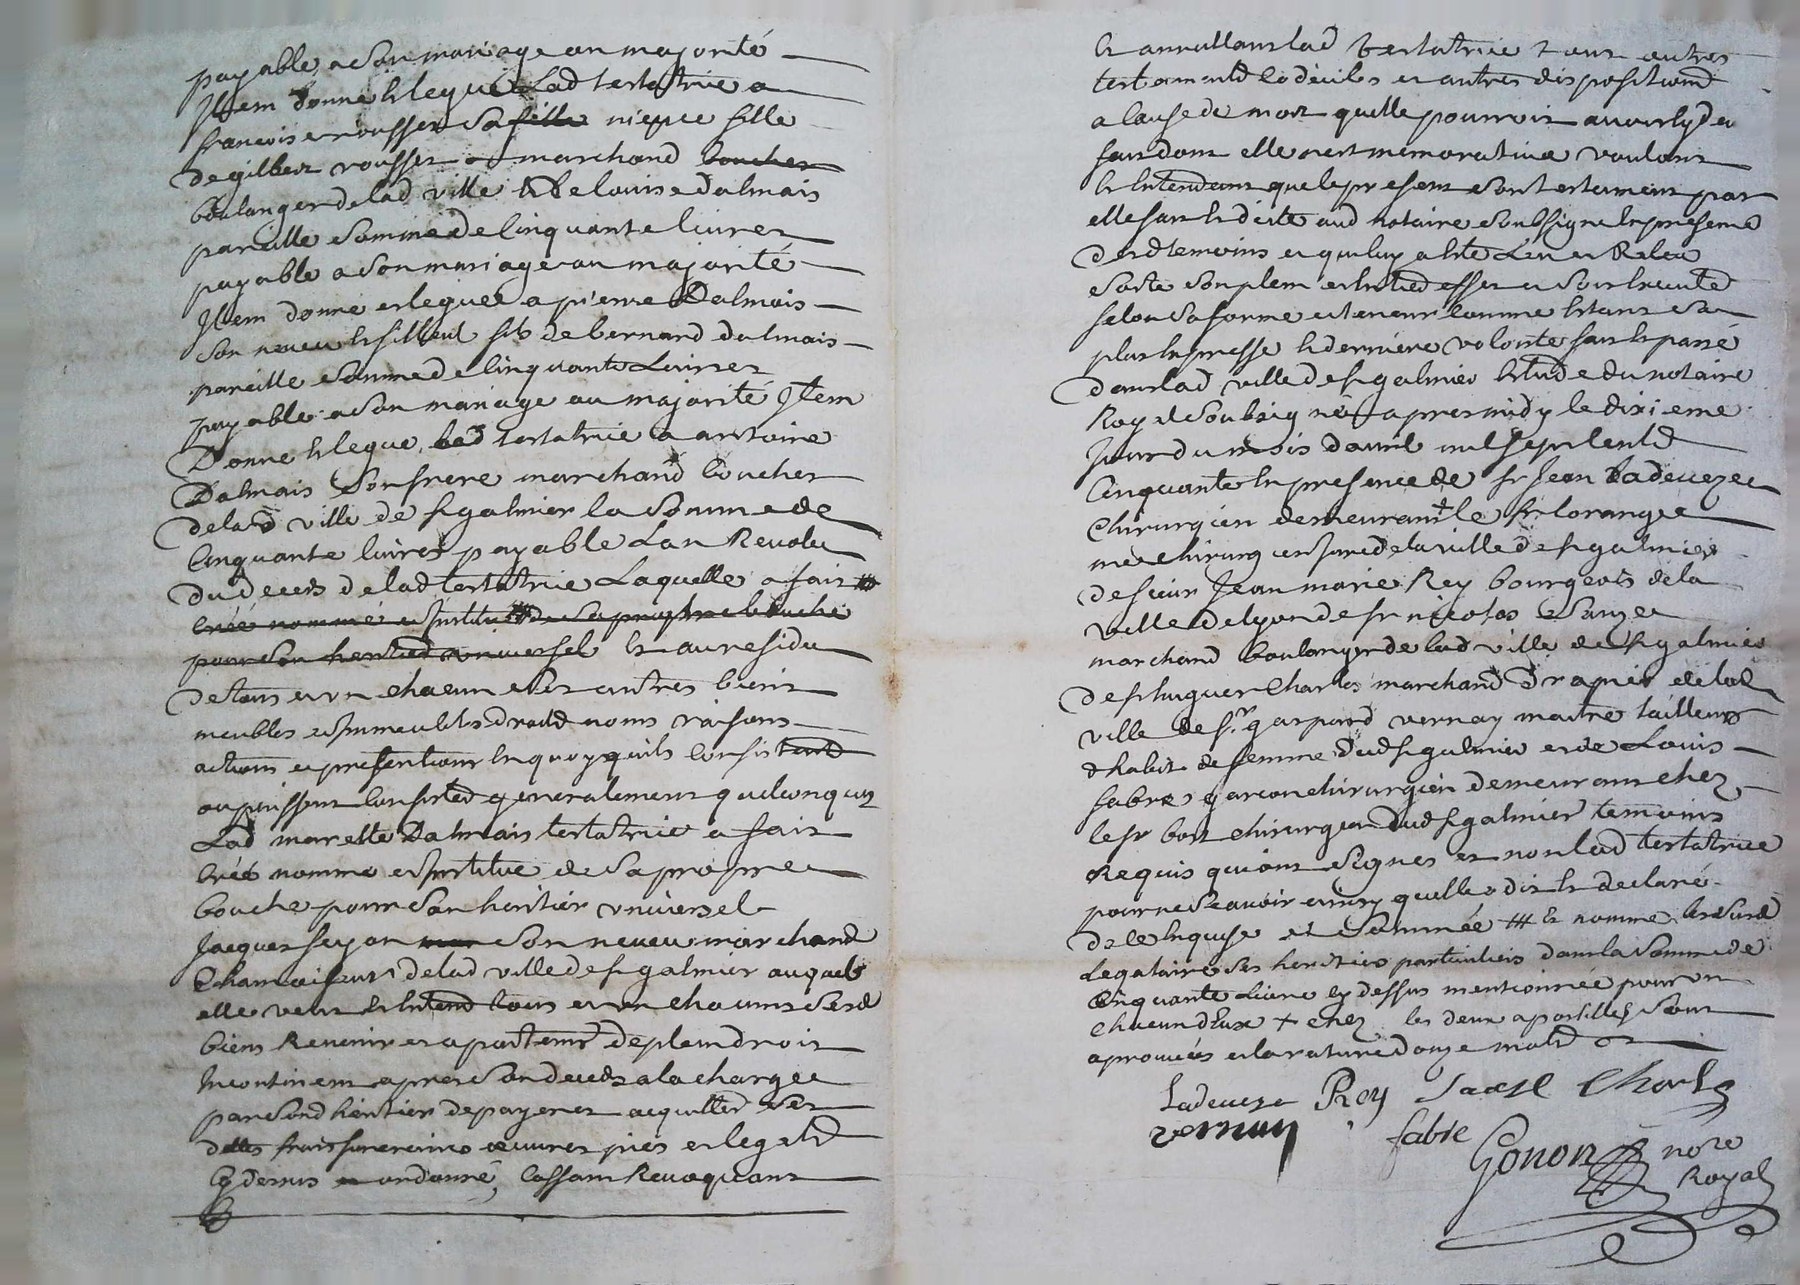 payable a son mariage ou majorité
Item donne et legue Lad testatrice a
francoise rousset sa fille niepce fille
de gilbert rousset marchand boucher
boulanger de lad ville et de louise dalmais
pareille somme de cinquante livres
payable a son mariage ou majorité
Item donne et legue a pierre Dalmais
son neveu et filleul fils de bernard dalmais
pareille somme de cinquante Livres
payable a son mariage ou majorité Item
Donne et legue lad testatrice a antoine
Dalmais son frere marchand boucher
de lad ville de st galmier la somme de
Cinquante livres payable Lan Revolu
du deces de lad testatrice Laquelle a fait #
créé nommé et Institué # de sa prophre bouche
pour son heritied universel et au residu
de tous et un chacun ses autres biens
meubles et Immeubles droitd noms raisons
actions et pretentions en quoy quils consistent
ou puissent consisted generalement quelconques
Lad mariette Dalmais testatrice a fait
créé nommé et Institué de sa propre
bouche pour son heritier universel
Jacques seyon son neveu marchand
Chamoiseur de lad ville de st galmier auquel
elle veut et entend tous et un chacuns sesd
biens Revenir et apartenir de plein droit
Incontinent apres son deceds a la charge
par sond heritier de payer et acquitter ses
dettes frais funeraires oeuvres pies et legatd
cy dessus ordonné, Cassant Revoquant
et annullant lad testatrice tous autres
testamentd codeciles et autres dispositiond
a cause de mort quelle pourroit avoir cy dev
fait dont elle nest memorative voulant
et Entendant que le present son testament par
elle fait et dicté aud notaire soubsigné en presence
desd temoins et qui luy a été Leu et Releu
sorte son plein et Entied effet et soit execute
selon sa forme et teneur comme etant sa
plus expresse et derniere volonté fait et passé
dans lad ville de st galmier etude du notaire
Royal soubsigné apres midy le dixieme
Jour du mois davril mil sept centd
Cinquante en presence de sr Jean Ladeveze
Chirurgien demeurant + le sr lorange
me chirurg en Jure de la ville de st galmier
de sieur Jean marie Rey bourgeois de la
ville de lyon de sr nicolas sauze
marchand boulanger de lad ville de st galmier
de sr huguer Charles marchand drapier de lad
ville de sr gaspard vernay maitre tailleur
dhabit de femme dud st galmier et de Louis
fabre garcon chirurgien demeurant chez
le sr bort chirurgien dud st galmier temoins
Requis qui ont signes et non lad testatrice
pour ne sçavoir ainsy quelle a dit et declaré
de ce enquise et sommée # et nomme
Legataires ses heritiers particuliers dans la somme de
cinquante Livre cy dessus mentionnée pour un
chacun deux + chez les deux apostilles sont
aprouvées et la rature donze motd
Ladeveze Rey Sauze Charles
vernay fabre Gonon nore
Royal